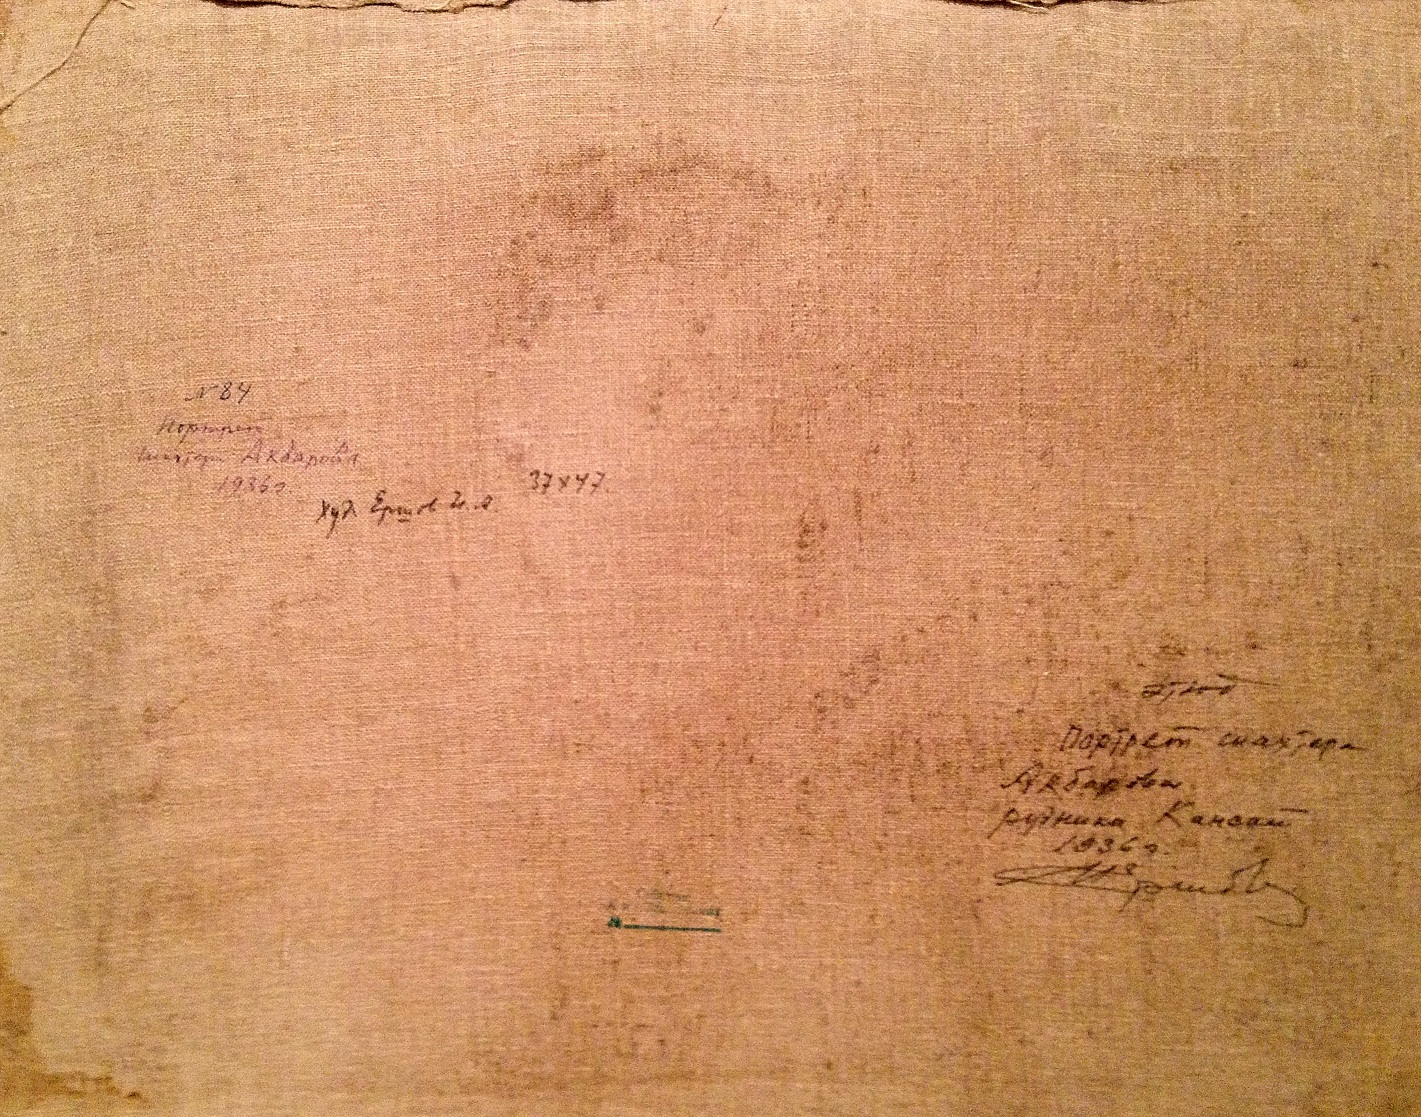 № 84
Портрет
шахтера Акбарова
1936 г.
Худ. Ершов И. А.
37×47.
Этюд
Портрет шахтера
Акбарова
рудника Кансай
1936 г.
Ершов